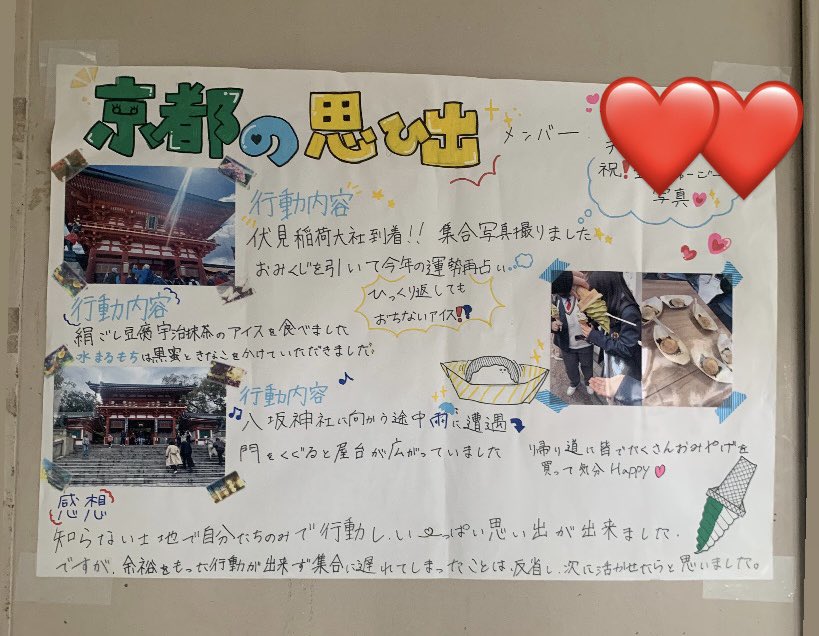 京都の思ひ出
メンバー
祝!
写真
行動内容
伏見稲荷大社到着!! 集合写真撮りました
おみくじを引いて今年の運勢再占い
ひっくり返しても
おちないアイス!?
行動内容
絹ごし豆腐宇治抹茶のアイスを食べました
水まるもちは黒蜜ときなこをかけていただきました。
行動内容
八坂神社に向かう途中雨に遭遇
門をくぐると屋台が広がっていました
帰り道に皆でたくさんおみやげを
買って気分Happy♡
感想
知らない土地で自分たちのみで行動し、いっぱい思い出が出来ました.
ですが、余裕をもった行動が出来ず集合に遅れてしまったことは、反省し、次に活かせたらと思いました。